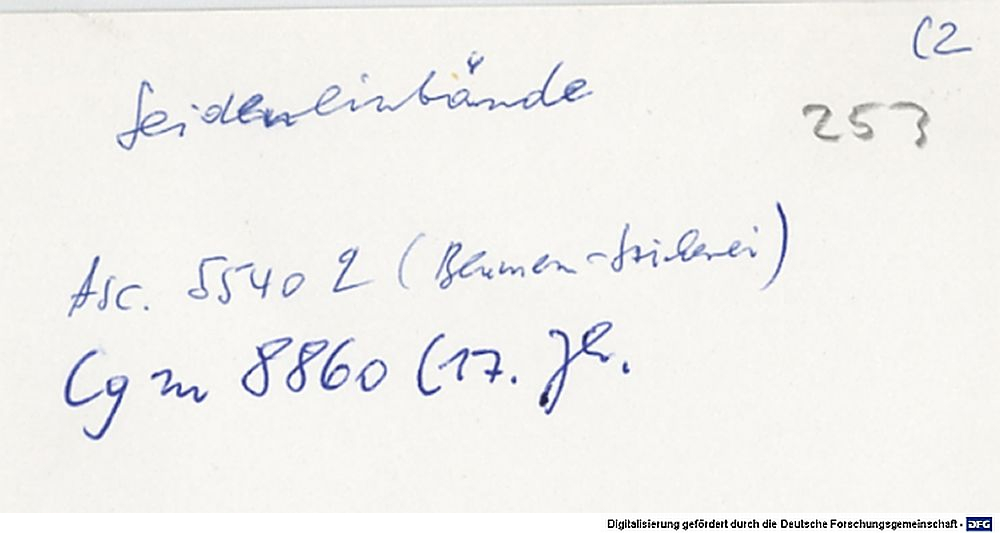 C2
Seideneinbände
253
Asc. 5540 2 (Blumen-Stickerei)
Cgm 8860 (17. Jh.
Digitalisierung gefördert durch die Deutsche Forschungsgemeinschaft - DFG